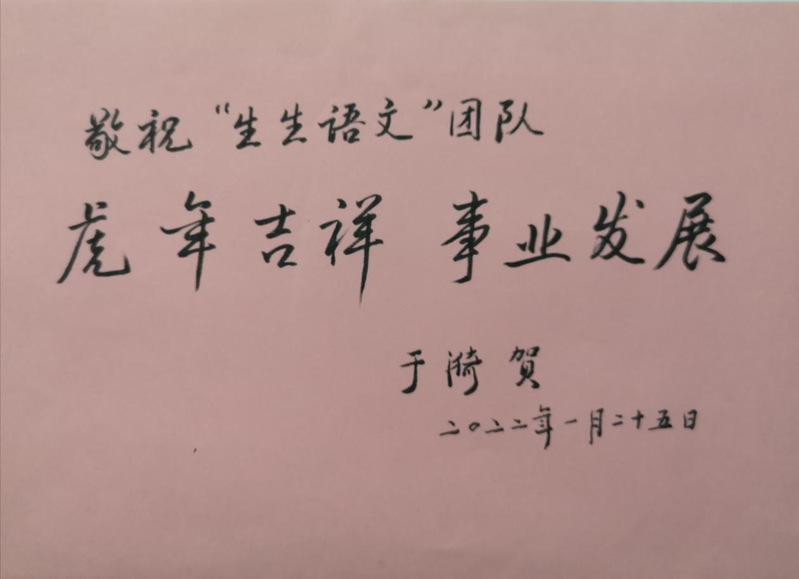 敬祝“生生语文”团队
虎年吉祥 事业发展
于漪 贺
二〇二二年一月二十五日